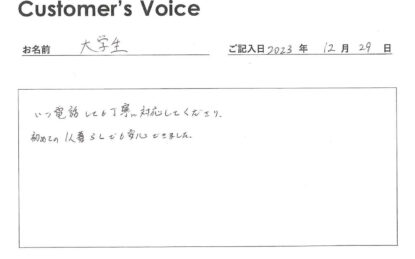 Customer's Voice
お名前 大学生 ご記入日 2023 年 12 月 29 日
いつ電話しても丁寧に対応してくださり、
初めての1人暮らしでも安心できました。